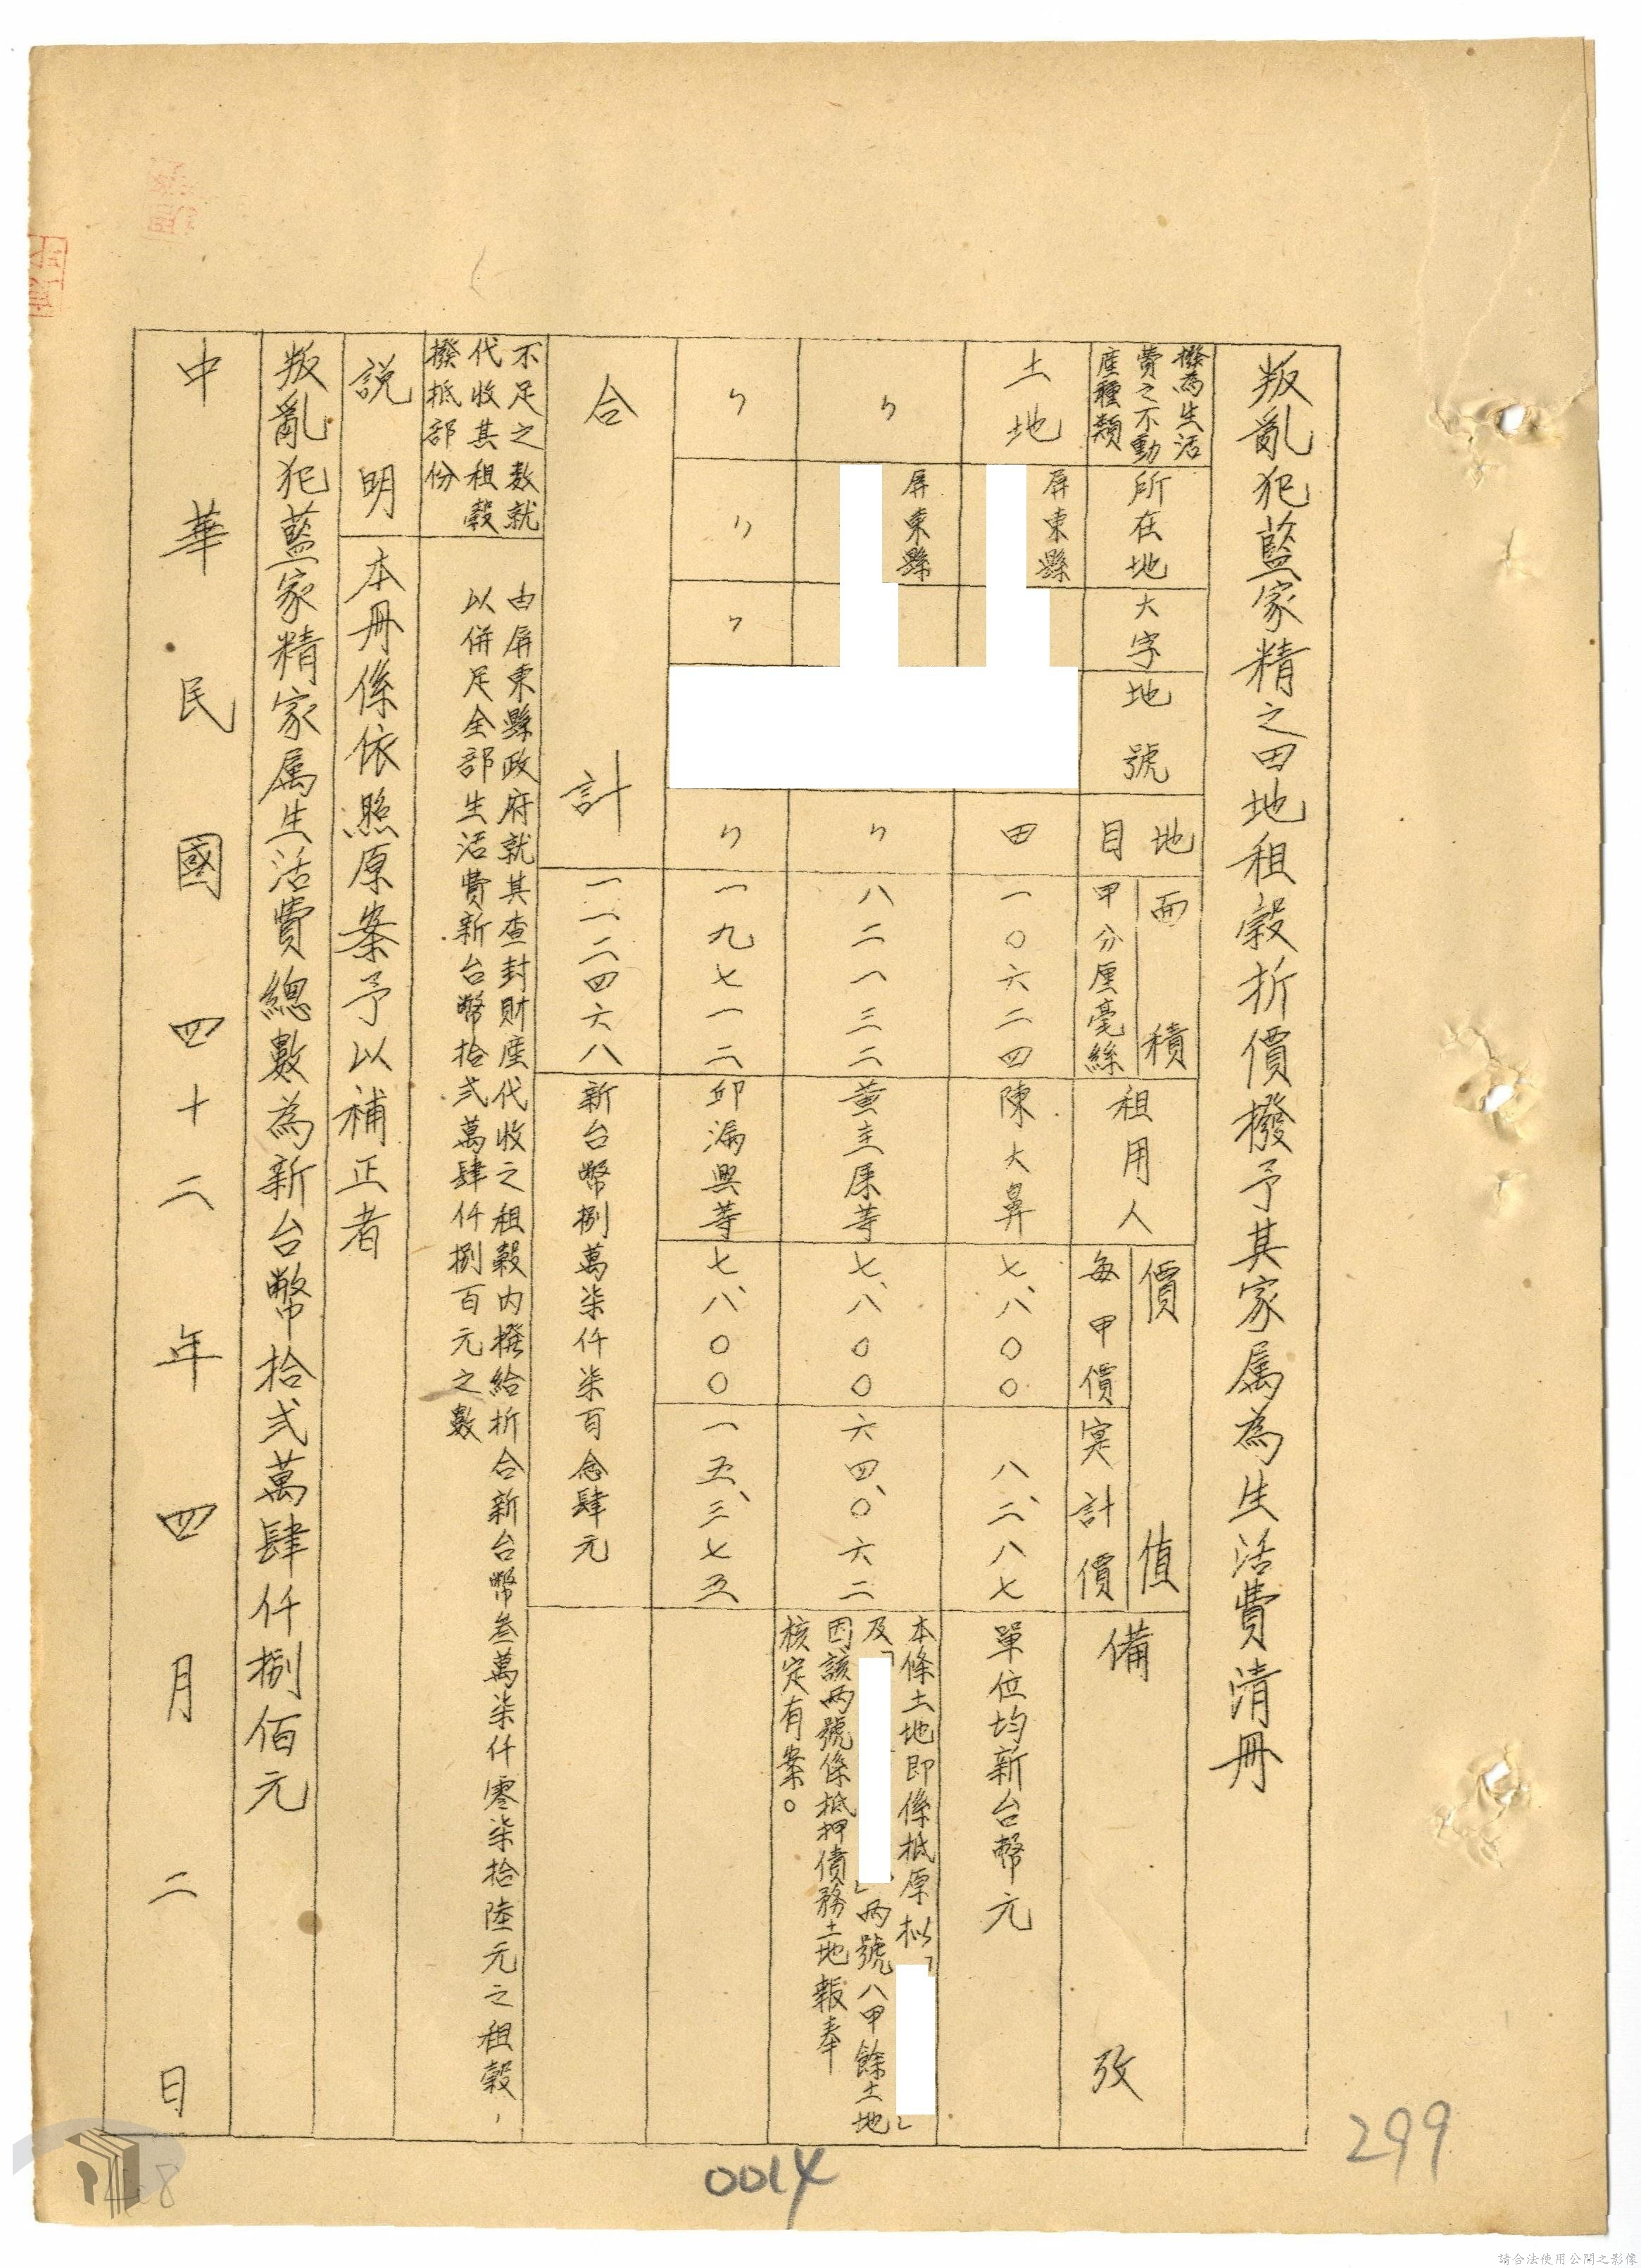 叛亂犯藍家精之田地租穀折價撥予其家属為生活費清冊
撥為生活費之不動產種類
所在地
大字
地號
地目
面積
甲分厘毫絲
租用人
價值
每甲價
実計價
備攷
土地
屏東縣
田
一〇六二四
陳大鼻
七、八〇〇
八、二八七
單位均新台幣元
〃
屏東縣
〃
八二一三二
黃主屘等
七、八〇〇
六四、〇六二
本條土地即係抵原拟「」
及「」兩號八甲餘土地
因該兩號係抵押債務土地報奉
核定有案。
〃
〃
〃
〃
一九七一二
邱漏興等
七、八〇〇
一五、三七五
合計
一一二四六八
新台幣捌萬柒仟柒百念肆元
不足之数就
代收其租穀
撥抵部份
由屏東縣政府就其查封財產代收之租穀内撥給折合新台幣叁萬柒仟零柒拾陸元之租穀，
以併足全部生活費新台幣拾弍萬肆仟捌百元之數
説明
本冊係依照原案予以補正者
叛亂犯藍家精家属生活費總數為新台幣拾弍萬肆仟捌佰元
中華民國四十二年四月二日
299
0014
請合法使用公開之影像